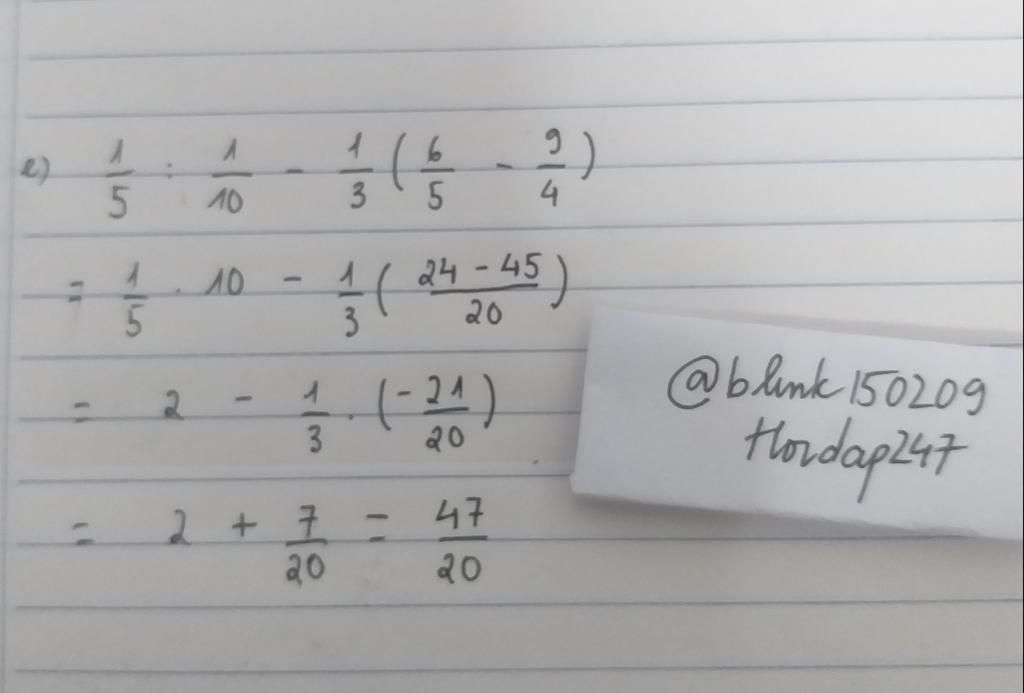 e) 1/5 : 1/10 - 1/3 ( 6/5 - 9/4 )
= 1/5 . 10 - 1/3 ( (24 - 45)/20 )
= 2 - 1/3 . ( - 21/20 )
= 2 + 7/20 = 47/20
@blink150209
Hoidap247